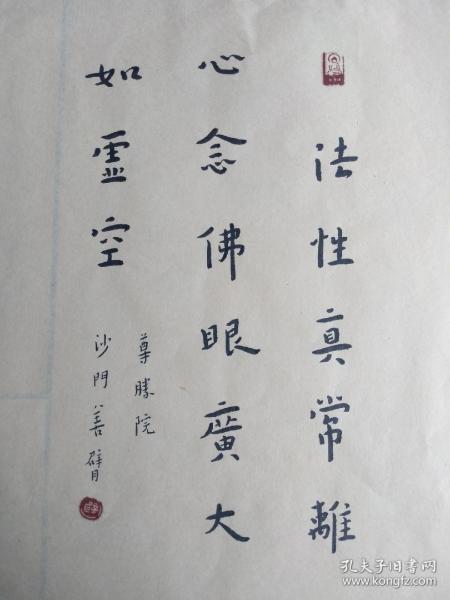 法性真常離
心念佛眼廣大
如虛空
尊勝院
沙門善臂
孔夫子旧书网
www.kongfz.com